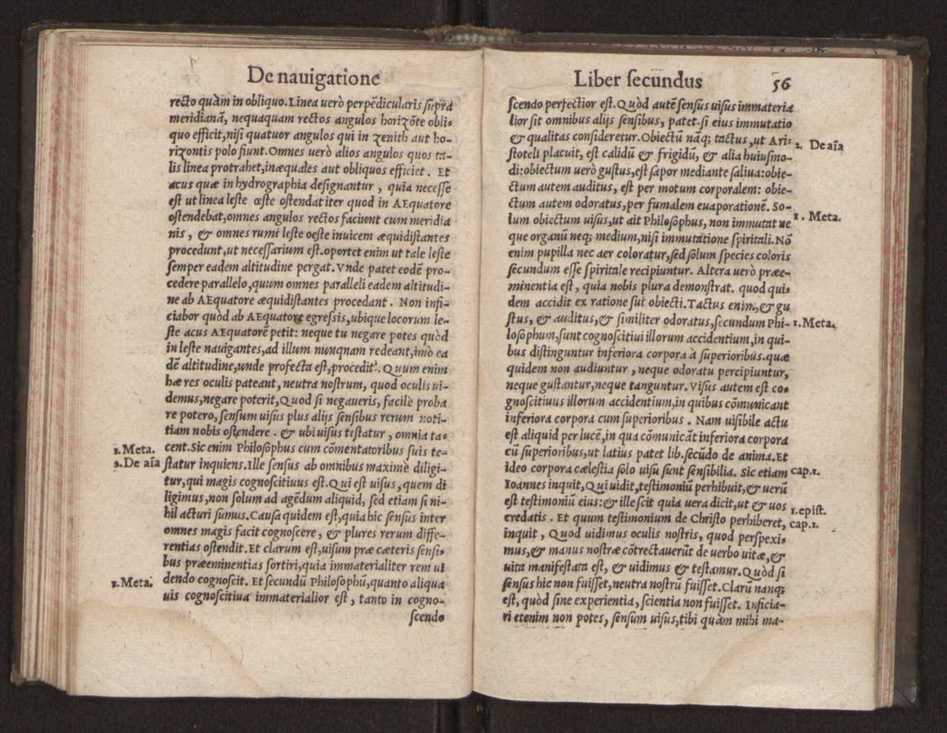 De nauigatione
recto quàm in obliquo. Linea uerò perpẽdicularis supra
meridianã, nequaquam rectos angulos horizõte obli-
quo efficit, nisi quatuor angulos qui in zenith aut ho-
rizontis polo fiunt. Omnes uerò alios angulos quos ta-
lis linea protrahet, inæquales aut obliquos efficiet. Et
acus quæ in hydrographia designantur, quia necesse
est ut linea leste œste ostendat iter quod in AEquatore
ostendebat, omnes angulos rectos facient cum meridia
nis, & omnes rumi leste oeste inuicem æquidistantes
procedunt, ut necessarium est. oportet enim ut tale leste
semper eadem altitudine pergat. Vnde patet eodẽ pro-
cedere parallelo, quum omnes paralleli eadem altitudi-
ne ab AEquatore æquidistantes procedant. Non infi-
ciabor quòd ab AEquatore egressis, ubique locorum le-
ste acus AEquatorẽ petit: neque tu negare potes quòd
in leste nauigantes, ad illum nunqnam redeant, imò ea
dẽ altitudine, unde profecta est, procedit. Quum enim
hæ res oculis pateant, neutra nostrum, quod oculis ui-
demus, negare poterit, Quod si negaueris, facilè proba
re potero, sensum uisus plus alijs sensibus rerum noti-
tiam nobis ostendere. & ubi uisus tistatur, omnia ta-
1. Meta. cent. Sic enim Philosophus cum cõmentatoribus suis te-
2. De aĩa statur inquiens. Ille sensus ab omnibus maximè diligi-
tur, qui magis cognoscitiuus est. Qui est uisus, quem di
ligimus, non solum ad agẽdum aliquid, sed etiam si ni-
hil acturi sumus. Causa quidem est, quia hic sensus inter
omnes magis facit cognoscere, & plures rerum diffe-
rentias ostendit. Et clarum est, uisum præ cæteris sensi-
bus præeminentias sortiri, quia immaterialiter rem ui
1. Meta. dendo cognoscit. Et secundũ Philosophũ, quanto aliqua
uis cognoscitiua immaterialior est, tanto in cogno-
scendo
Liber secundus 56
scendo perfectior est. Quòd autẽ sensus uisus immateria
lior sit omnibus alijs sensibus, patet. si eius immutatio
& qualitas consideretur. Obiectũ nãq; tactus, ut Ari- 2. De aĩa
stoteli placuit, est calidũ & frigidũ, & alia huiusmo-
di: obiectum uerò gustus, est sapor mediante saliua: obie-
ctum autem auditus, est per motum corporalem: obie-
ctum autem odoratus, per fumalem euaporationẽ. So-
lum obiectum uisus, ut ait Philosophus, non immutat ne 1. Meta.
que organũ neq; medium, nisi immutatione spiritali. Nõ
enim pupilla nec aer coloratur, sed sòlum species coloris
secundum esse spiritale recipiuntur. Altera uerò præe-
minentia est, quia nobis plura demonstrat. quod qui-
dem accidit ex ratione sui obiecti. Tactus enim, & gu
stus, & auditus, & similiter odoratus, secundum Phi- 1. Meta.
losophum, sunt cognoscitiui illorum accidentium, in qui-
bus distinguntur inferiora corpora à superioribus. quæ
quidem non audiuntur, neque odoratu percipiuntur,
neque gustantur, neque tanguntur. Visus autem est co-
gnoscitiuus illorum accidentium, in quibus cõmunicant
inferiora corpora cum superioribus. Nam uisibile actu
est aliquid per lucẽ, in qua cõmunicãt inferiora corpora
cũ superioribus, ut latius patet lib. secũdo de anima. Et
ideo corpora cælestia solo uisu sunt sensibilia. Sic etiam cap. 1.
Ioannes inquit, Qui uidit, testimoniũ perhibuit, & uerũ
est testimoniũ eius: & ille scit quia uera dicit, ut & uos 1. epist.
credatis. Et quum testimonium de Christo perhiberet, cap. 1.
inquit, Quod uidimus oculis nostris, quod perspexi-
mus, & manus nostræ cõtrectauerũt de uerbo uitæ, &
uita manifestata est, & uidimus & testamur. Quòd si
sensus hic non fuisset, neutra nostrũ fuisset. Clarũ nanq;
est, quòd sine experientia, scientia non fuisset. Inficia-
ri etenim non potes, sensum uisus, tibi quàm mihi ma-